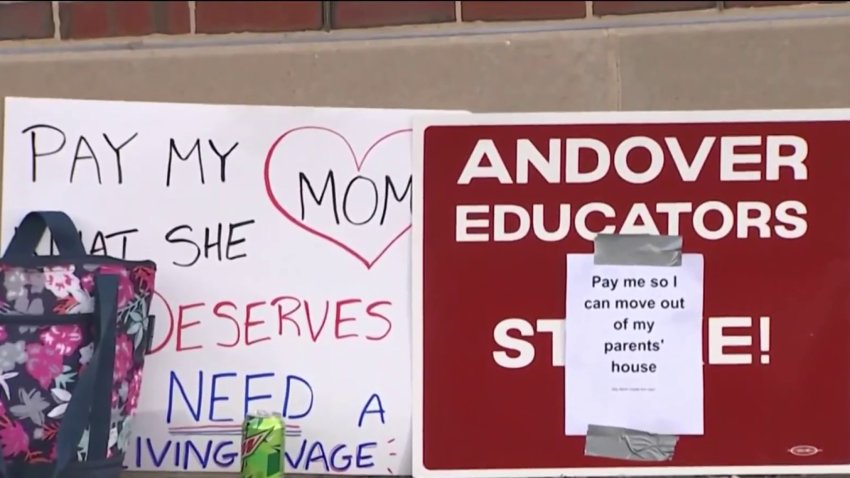 PAY MY MOM
WHAT SHE
DESERVES
NEED A
LIVING WAGE
ANDOVER
EDUCATORS
ST E!
Pay me so I
can move out
of my
parents'
house